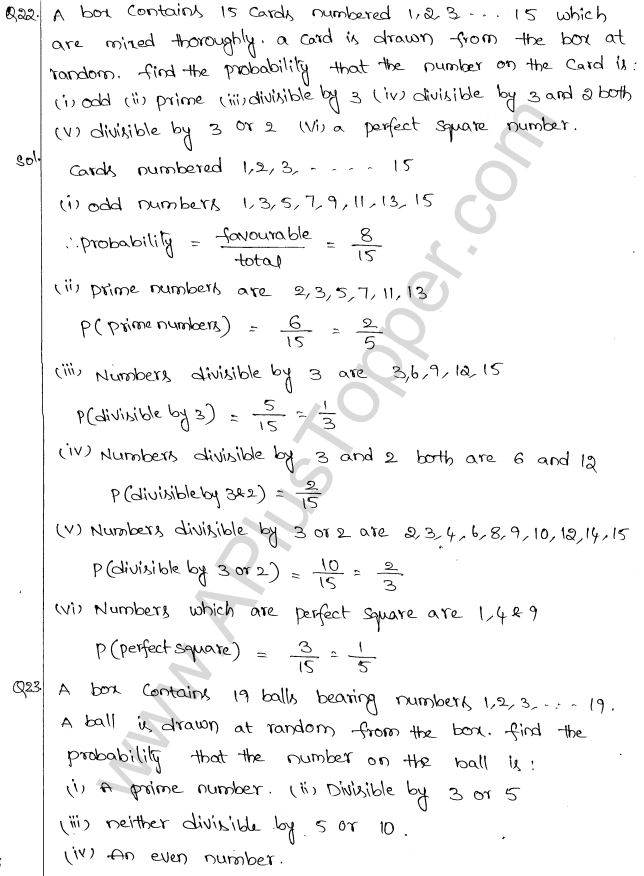 Q22. A box contains 15 cards numbered 1,2,3 --- 15 which
are mixed thoroughly. a card is drawn from the box at
random. find the probability that the number on the card is:
(i) odd (ii) prime (iii) divisible by 3 (iv) divisible by 3 and 2 both
(v) divisible by 3 or 2 (vi) a perfect square number.
Sol. Cards numbered 1,2,3, - - - - - 15
(i) odd numbers 1,3,5,7,9,11,13,15
∴ probability = favourable/total = 8/15
(ii) prime numbers are 2,3,5,7,11,13
P(prime numbers) = 6/15 = 2/5
(iii) Numbers divisible by 3 are 3,6,9,12,15
P(divisible by 3) = 5/15 = 1/3
(iv) Numbers divisible by 3 and 2 both are 6 and 12
P(divisible by 3&2) = 2/15
(v) Numbers divisible by 3 or 2 are 2,3,4,6,8,9,10,12,14,15
P(divisible by 3 or 2) = 10/15 = 2/3
(vi) Numbers which are perfect square are 1,4 & 9
P(perfect square) = 3/15 = 1/5
Q23 A box contains 19 balls bearing numbers 1,2,3,--- 19.
A ball is drawn at random from the box. find the
probability that the number on the ball is:
(i) A prime number. (ii) Divisible by 3 or 5
(iii) neither divisible by 5 or 10.
(iv) An even number.
www.APlusTopper.com